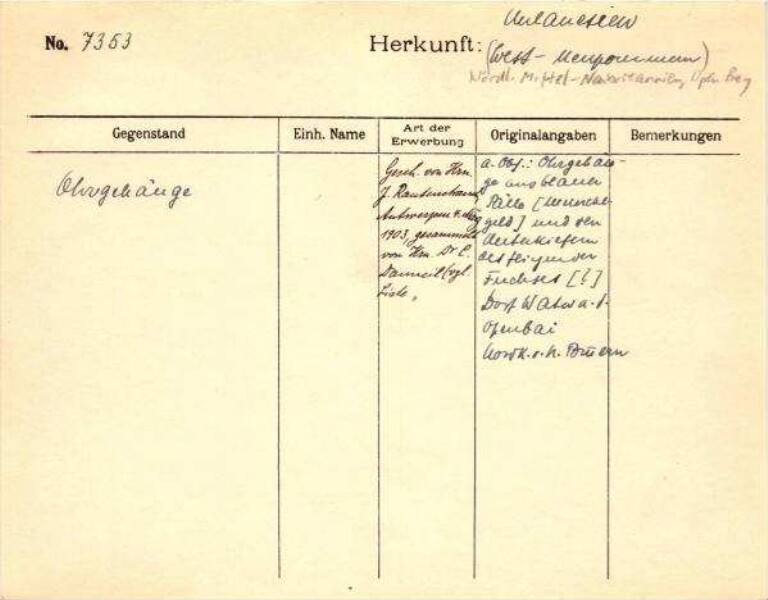 No. 7353
Herkunft:
Melanesien
(West-Neupommern)
Nördl. Mittel-Neubritannien, Open Bay
Gegenstand
Einh. Name
Art der Erwerbung
Originalangaben
Bemerkungen
Ohrgehänge
Gesch. von Hrn.
J. Rautenstrauch,
Antwerpen
1903, gesammelt
von Hrn. Dr C.
Danneil (vgl.
Liste.
a. Obj.: Ohrgehän-
ge aus blauen
[
geld] und den
Unterkiefern
des fliegenden
Fuchses [!]
Dorf Watu a. d.
Openbai
Nordk. v. N. Pommern